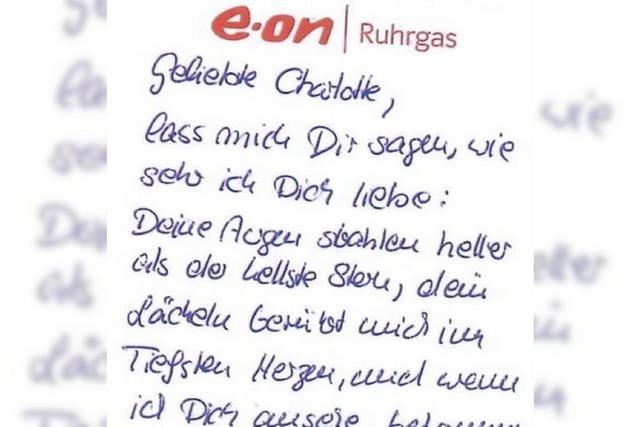 e·on | Ruhrgas
Geliebte Charlotte,
lass mich Dir sagen, wie
sehr ich Dich liebe:
Deine Augen strahlen heller
als der hellste Stern, dein
Lächeln berührt mich im
Tiefsten Herzen, und wenn
ich Dich